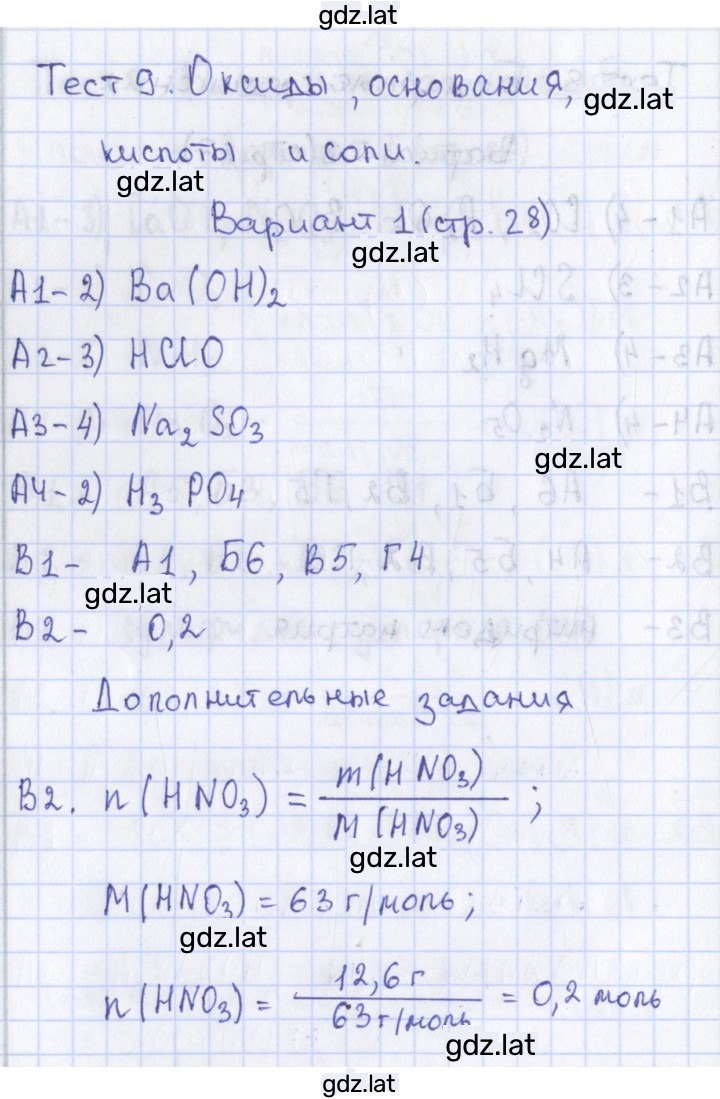 gdz.lat
Тест 9. Оксиды, основания,
gdz.lat
кислоты и соли.
gdz.lat
Вариант 1 (стр. 28)
gdz.lat
А1 - 2) Ba(OH)₂
А2 - 3) HClO
А3 - 4) Na₂SO₃
gdz.lat
А4 - 2) H₃PO₄
В1 - А1, Б6, В5, Г4
gdz.lat
В2 - 0,2
Дополнительные задания
В2. n(HNO₃) = m(HNO₃) / M(HNO₃);
gdz.lat
M(HNO₃) = 63 г/моль;
gdz.lat
n(HNO₃) = 12,6 г / 63 г/моль = 0,2 моль
gdz.lat
gdz.lat